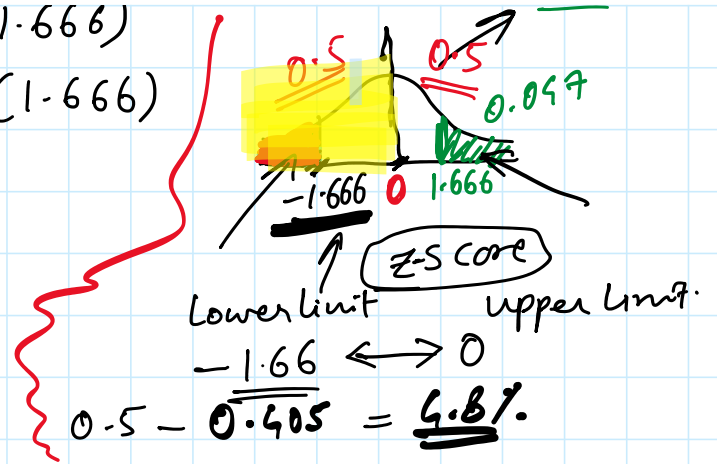 1.666)
(1.666)
0.5 0.5
0.047
-1.666 0 1.666
Z-Score
Lower limit upper limit.
-1.66 ↔ 0
0.5 - 0.405 = 4.8%